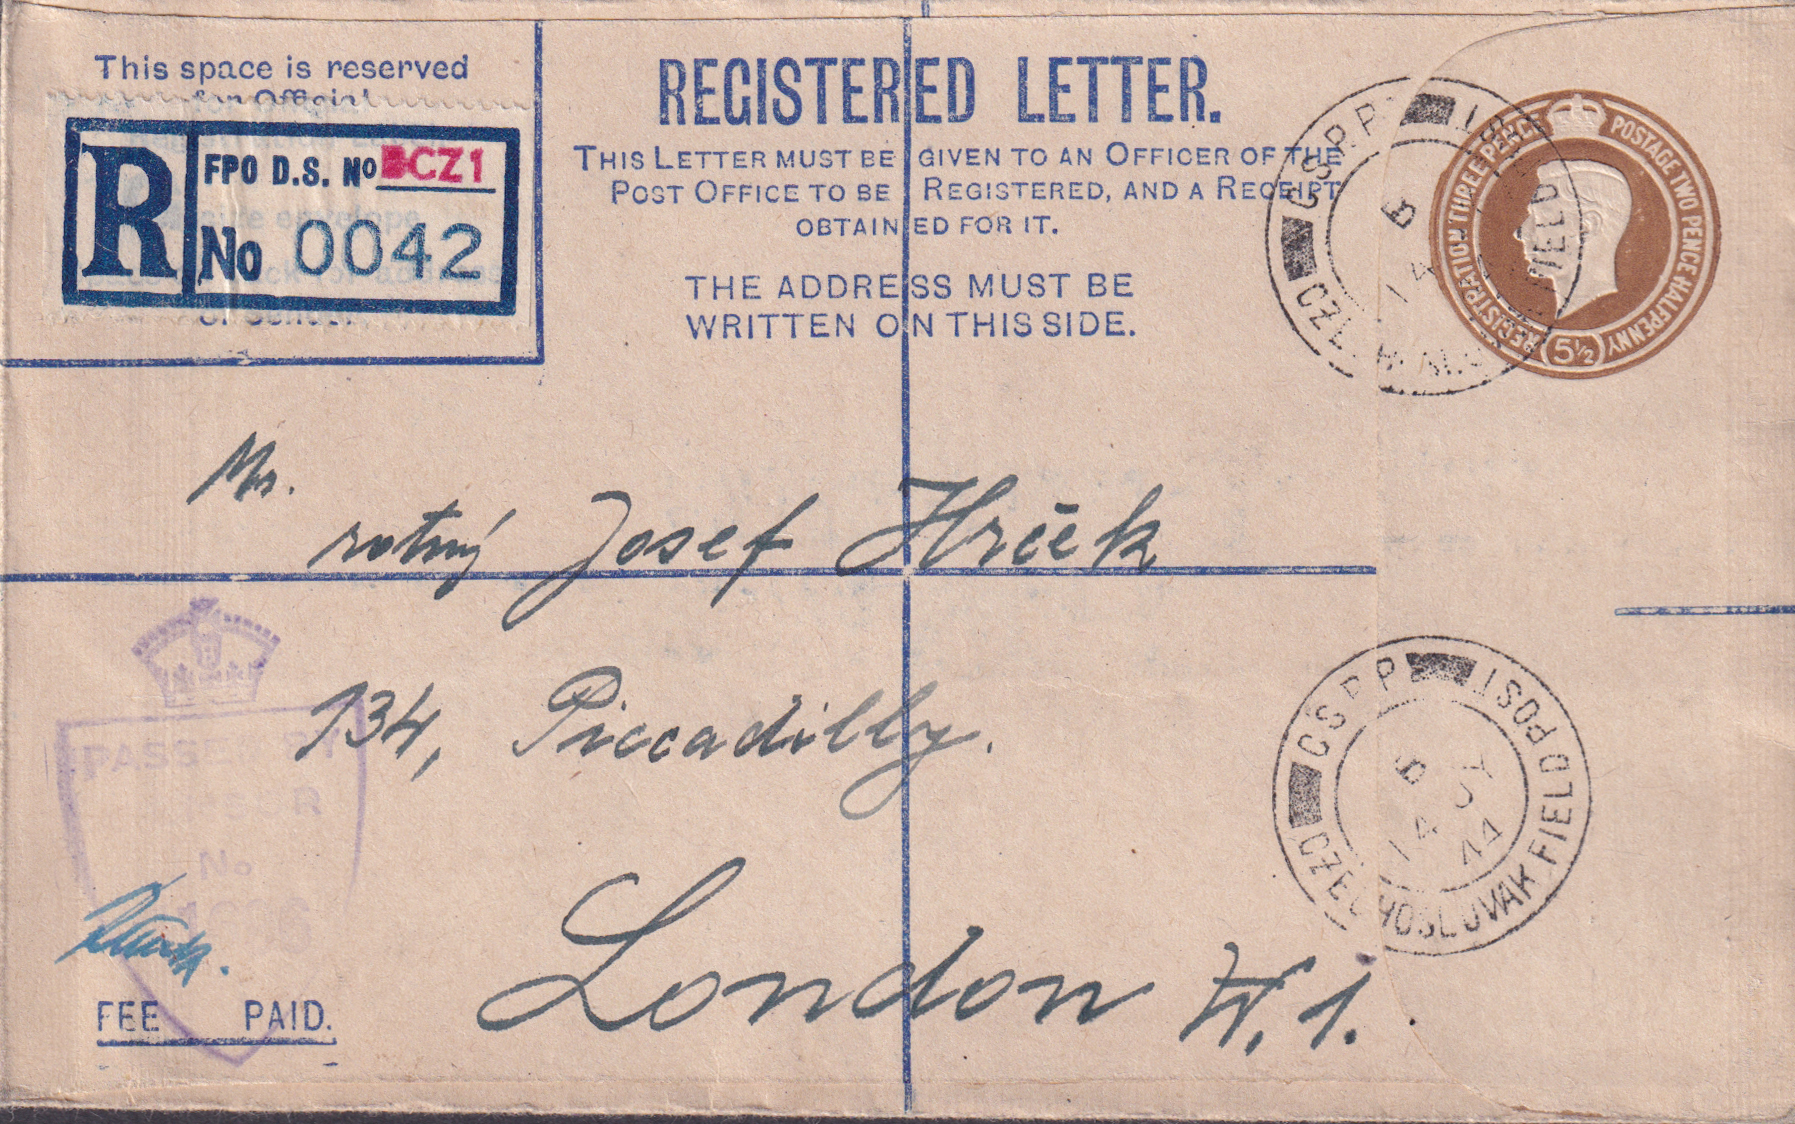 This space is reserved
REGISTERED LETTER.
THIS LETTER MUST BE GIVEN TO AN OFFICER OF THE
POST OFFICE TO BE REGISTERED, AND A RECEIPT
OBTAINED FOR IT.
THE ADDRESS MUST BE
WRITTEN ON THIS SIDE.
R
FPO D.S. No CZ1
No 0042
REGISTRATION THREE PENCE POSTAGE TWO PENCE HALFPENNY
5½
CSPP
FIELD
14
Mr.
rotný Josef Hrček
134, Piccadilly.
London W.1.
PASSED BY
No
FEE PAID.
CSPP
CZECHOSLOVAK FIELD POST
6
14
44